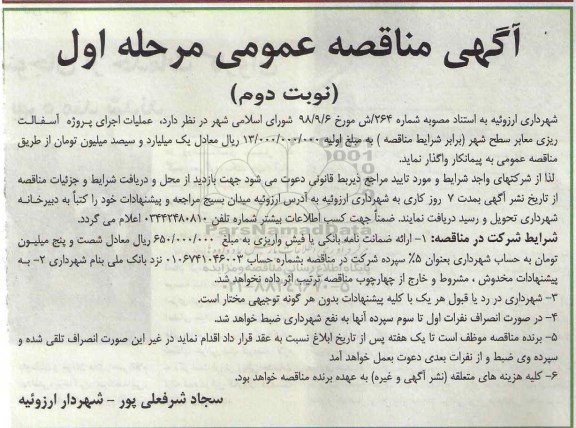 آگهی مناقصه عمومی مرحله اول
(نوبت دوم)
شهرداری ارزوئیه به استناد مصوبه شماره ۲۶۴/ش مورخ ۹۸/۹/۶ شورای اسلامی شهر در نظر دارد، عملیات اجرای پروژه آسفالت
ریزی معابر سطح شهر (برابر شرایط مناقصه ) به مبلغ اولیه ۱۳/۰۰۰/۰۰۰/۰۰۰ ریال معادل یک میلیارد و سیصد میلیون تومان از طریق
مناقصه عمومی به پیمانکار واگذار نماید.
لذا از شرکتهای واجد شرایط و مورد تایید مراجع ذیربط قانونی دعوت می شود جهت بازدید از محل و دریافت شرایط و جزئیات مناقصه
از تاریخ نشر آگهی بمدت ۷ روز کاری به شهرداری ارزوئیه به آدرس ارزوئیه میدان بسیج مراجعه و پیشنهادات خود را کتباً به دبیرخانه
شهرداری تحویل و رسید دریافت نمایند. ضمناً جهت کسب اطلاعات بیشتر شماره تلفن ۰۳۴۴۲۴۸۰۸۱۰ اعلام می گردد.
شرایط شرکت در مناقصه: ۱- ارائه ضمانت نامه بانکی یا فیش واریزی به مبلغ ۶۵۰/۰۰۰/۰۰۰ ریال معادل شصت و پنج میلیون
تومان به حساب شهرداری بعنوان ۵٪ سپرده شرکت در مناقصه بشماره حساب ۰۱۰۶۷۴۱۰۴۶۰۰۳ نزد بانک ملی بنام شهرداری ۲- به
پیشنهادات مخدوش ، مشروط و خارج از چهارچوب مناقصه ترتیب اثر داده نخواهد شد.
۳- شهرداری در رد یا قبول هر یک یا کلیه پیشنهادات بدون هر گونه توجیهی مختار است.
۴- در صورت انصراف نفرات اول تا سوم سپرده آنها به نفع شهرداری ضبط خواهد شد.
۵- برنده مناقصه موظف است تا یک هفته پس از تاریخ ابلاغ نسبت به عقد قرار داد اقدام نماید در غیر این صورت انصراف تلقی شده و
سپرده وی ضبط و از نفرات بعدی دعوت بعمل خواهد آمد
۶- کلیه هزینه های متعلقه (نشر آگهی و غیره) به عهده برنده مناقصه خواهد بود.
سجاد شرفعلی پور - شهردار ارزوئیه
ParsNamadData